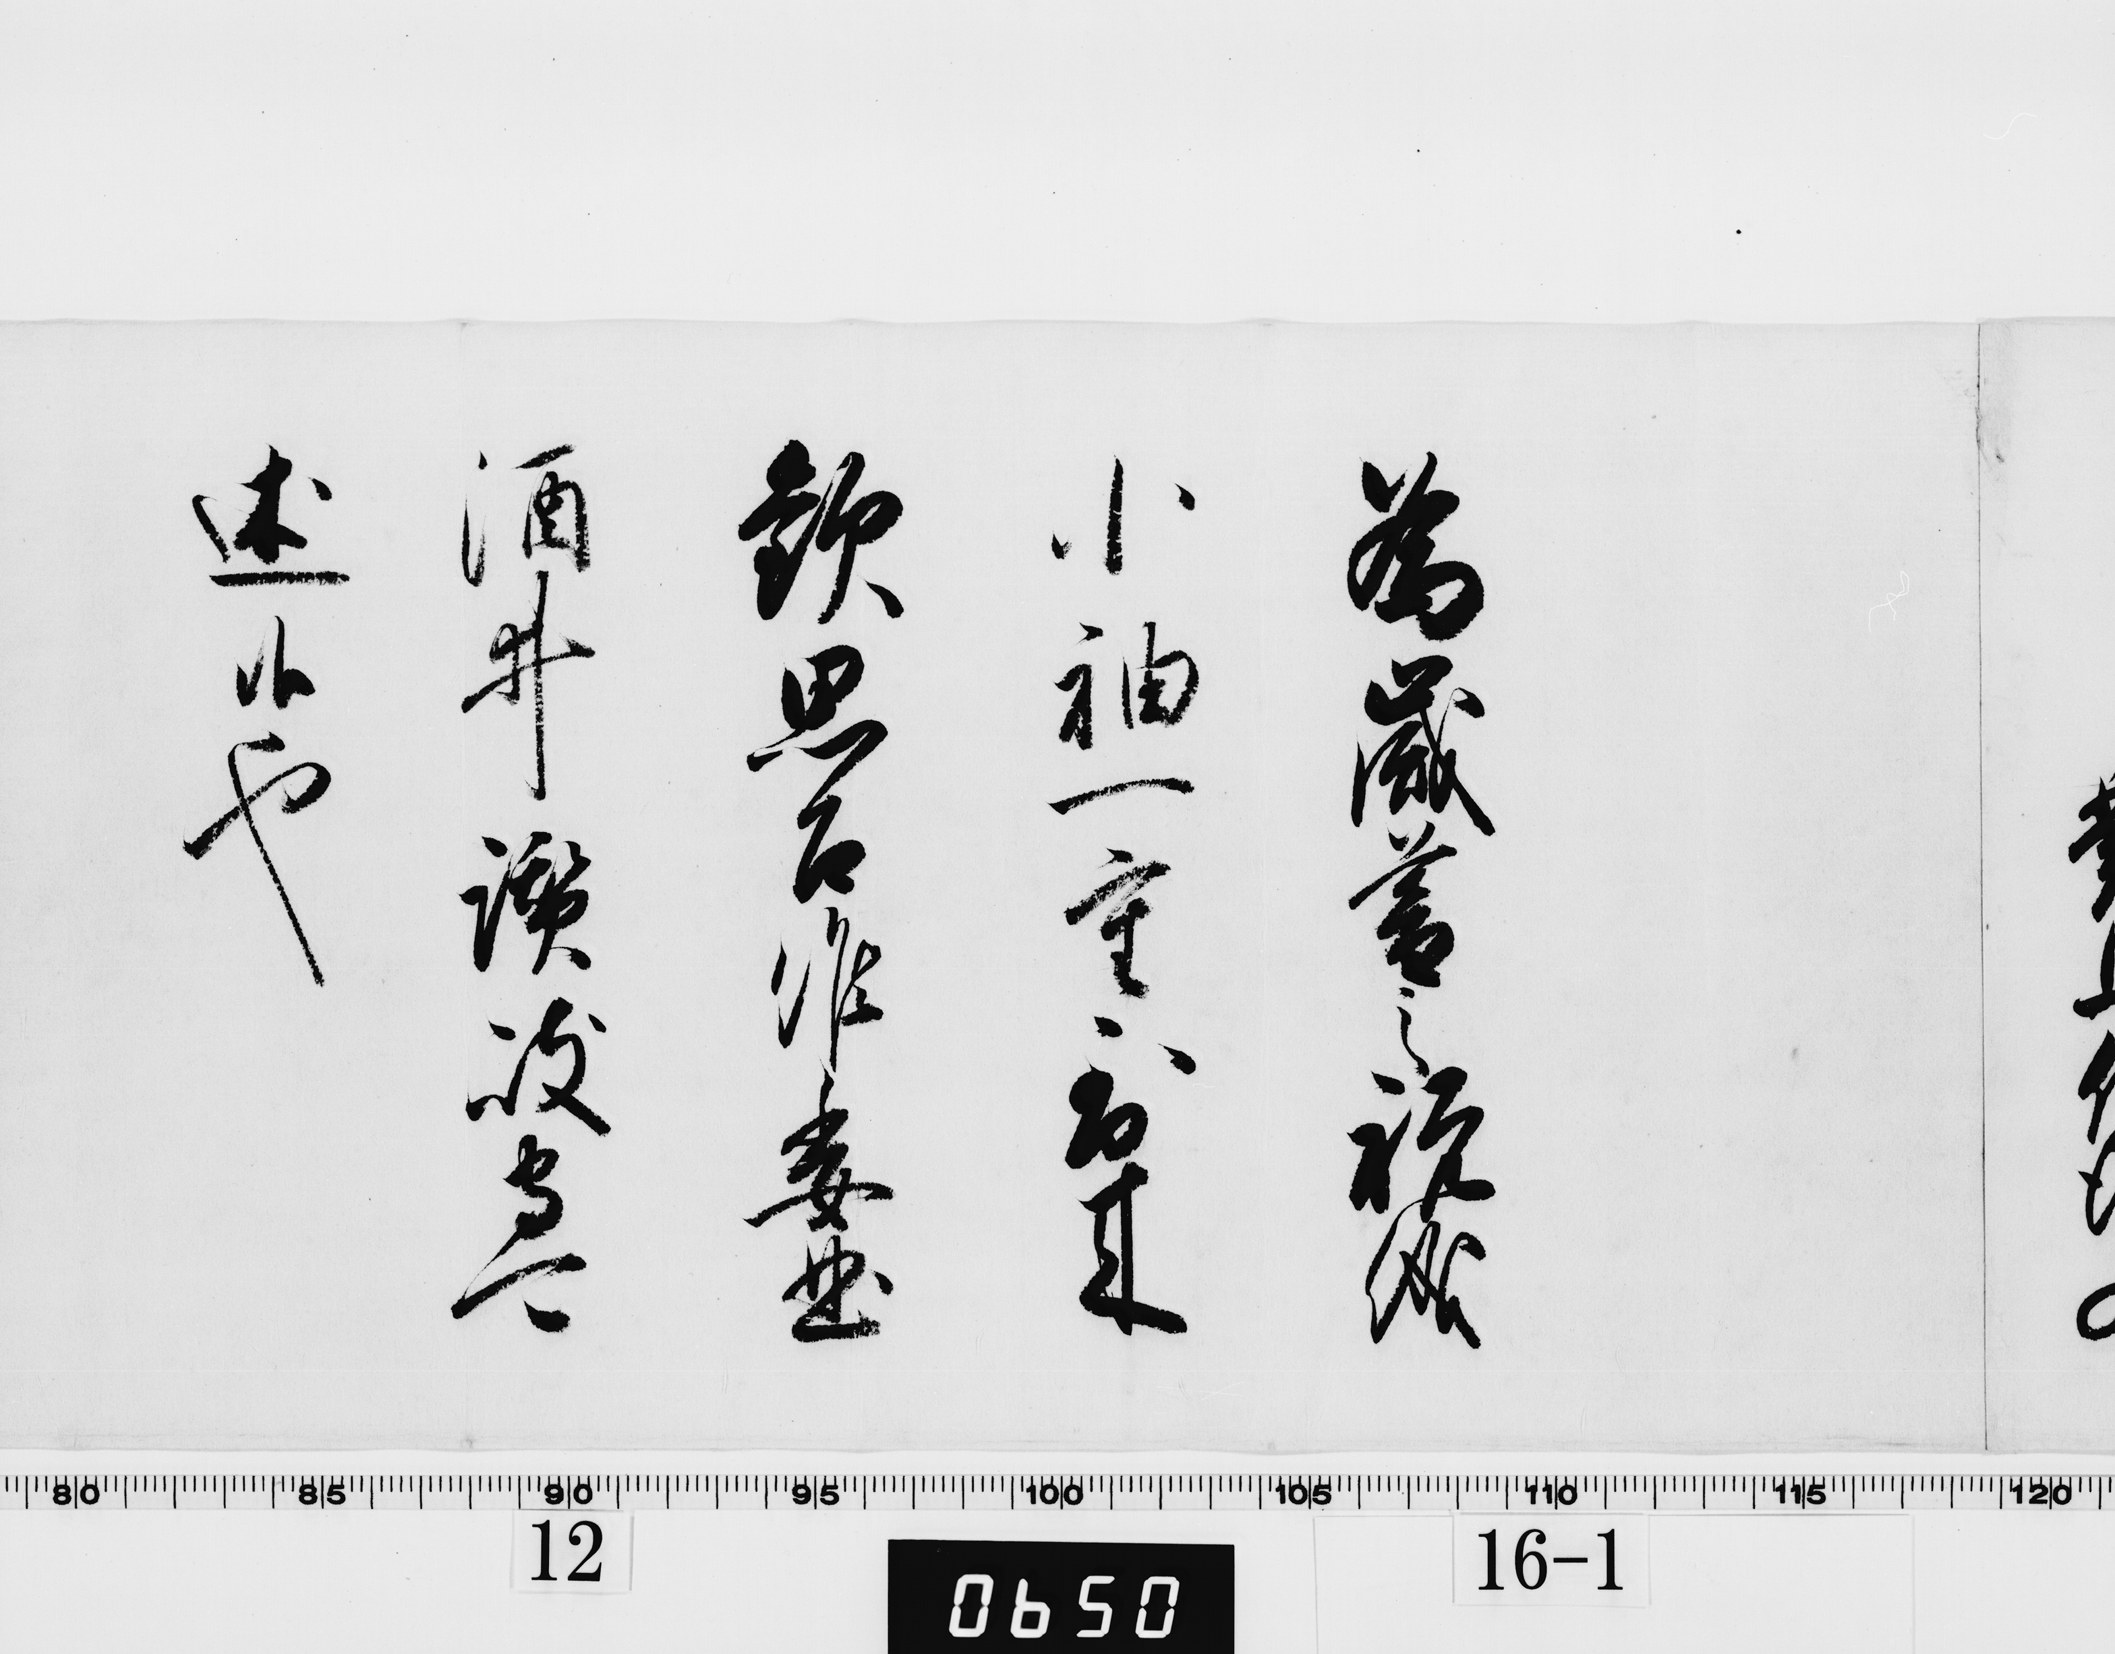 為歳暮之祝儀
小袖一重到来
歓思召候委曲
酒井讃岐守可
述候也
80 85 90 95 100 105 110 115 120
12
0650
16-1